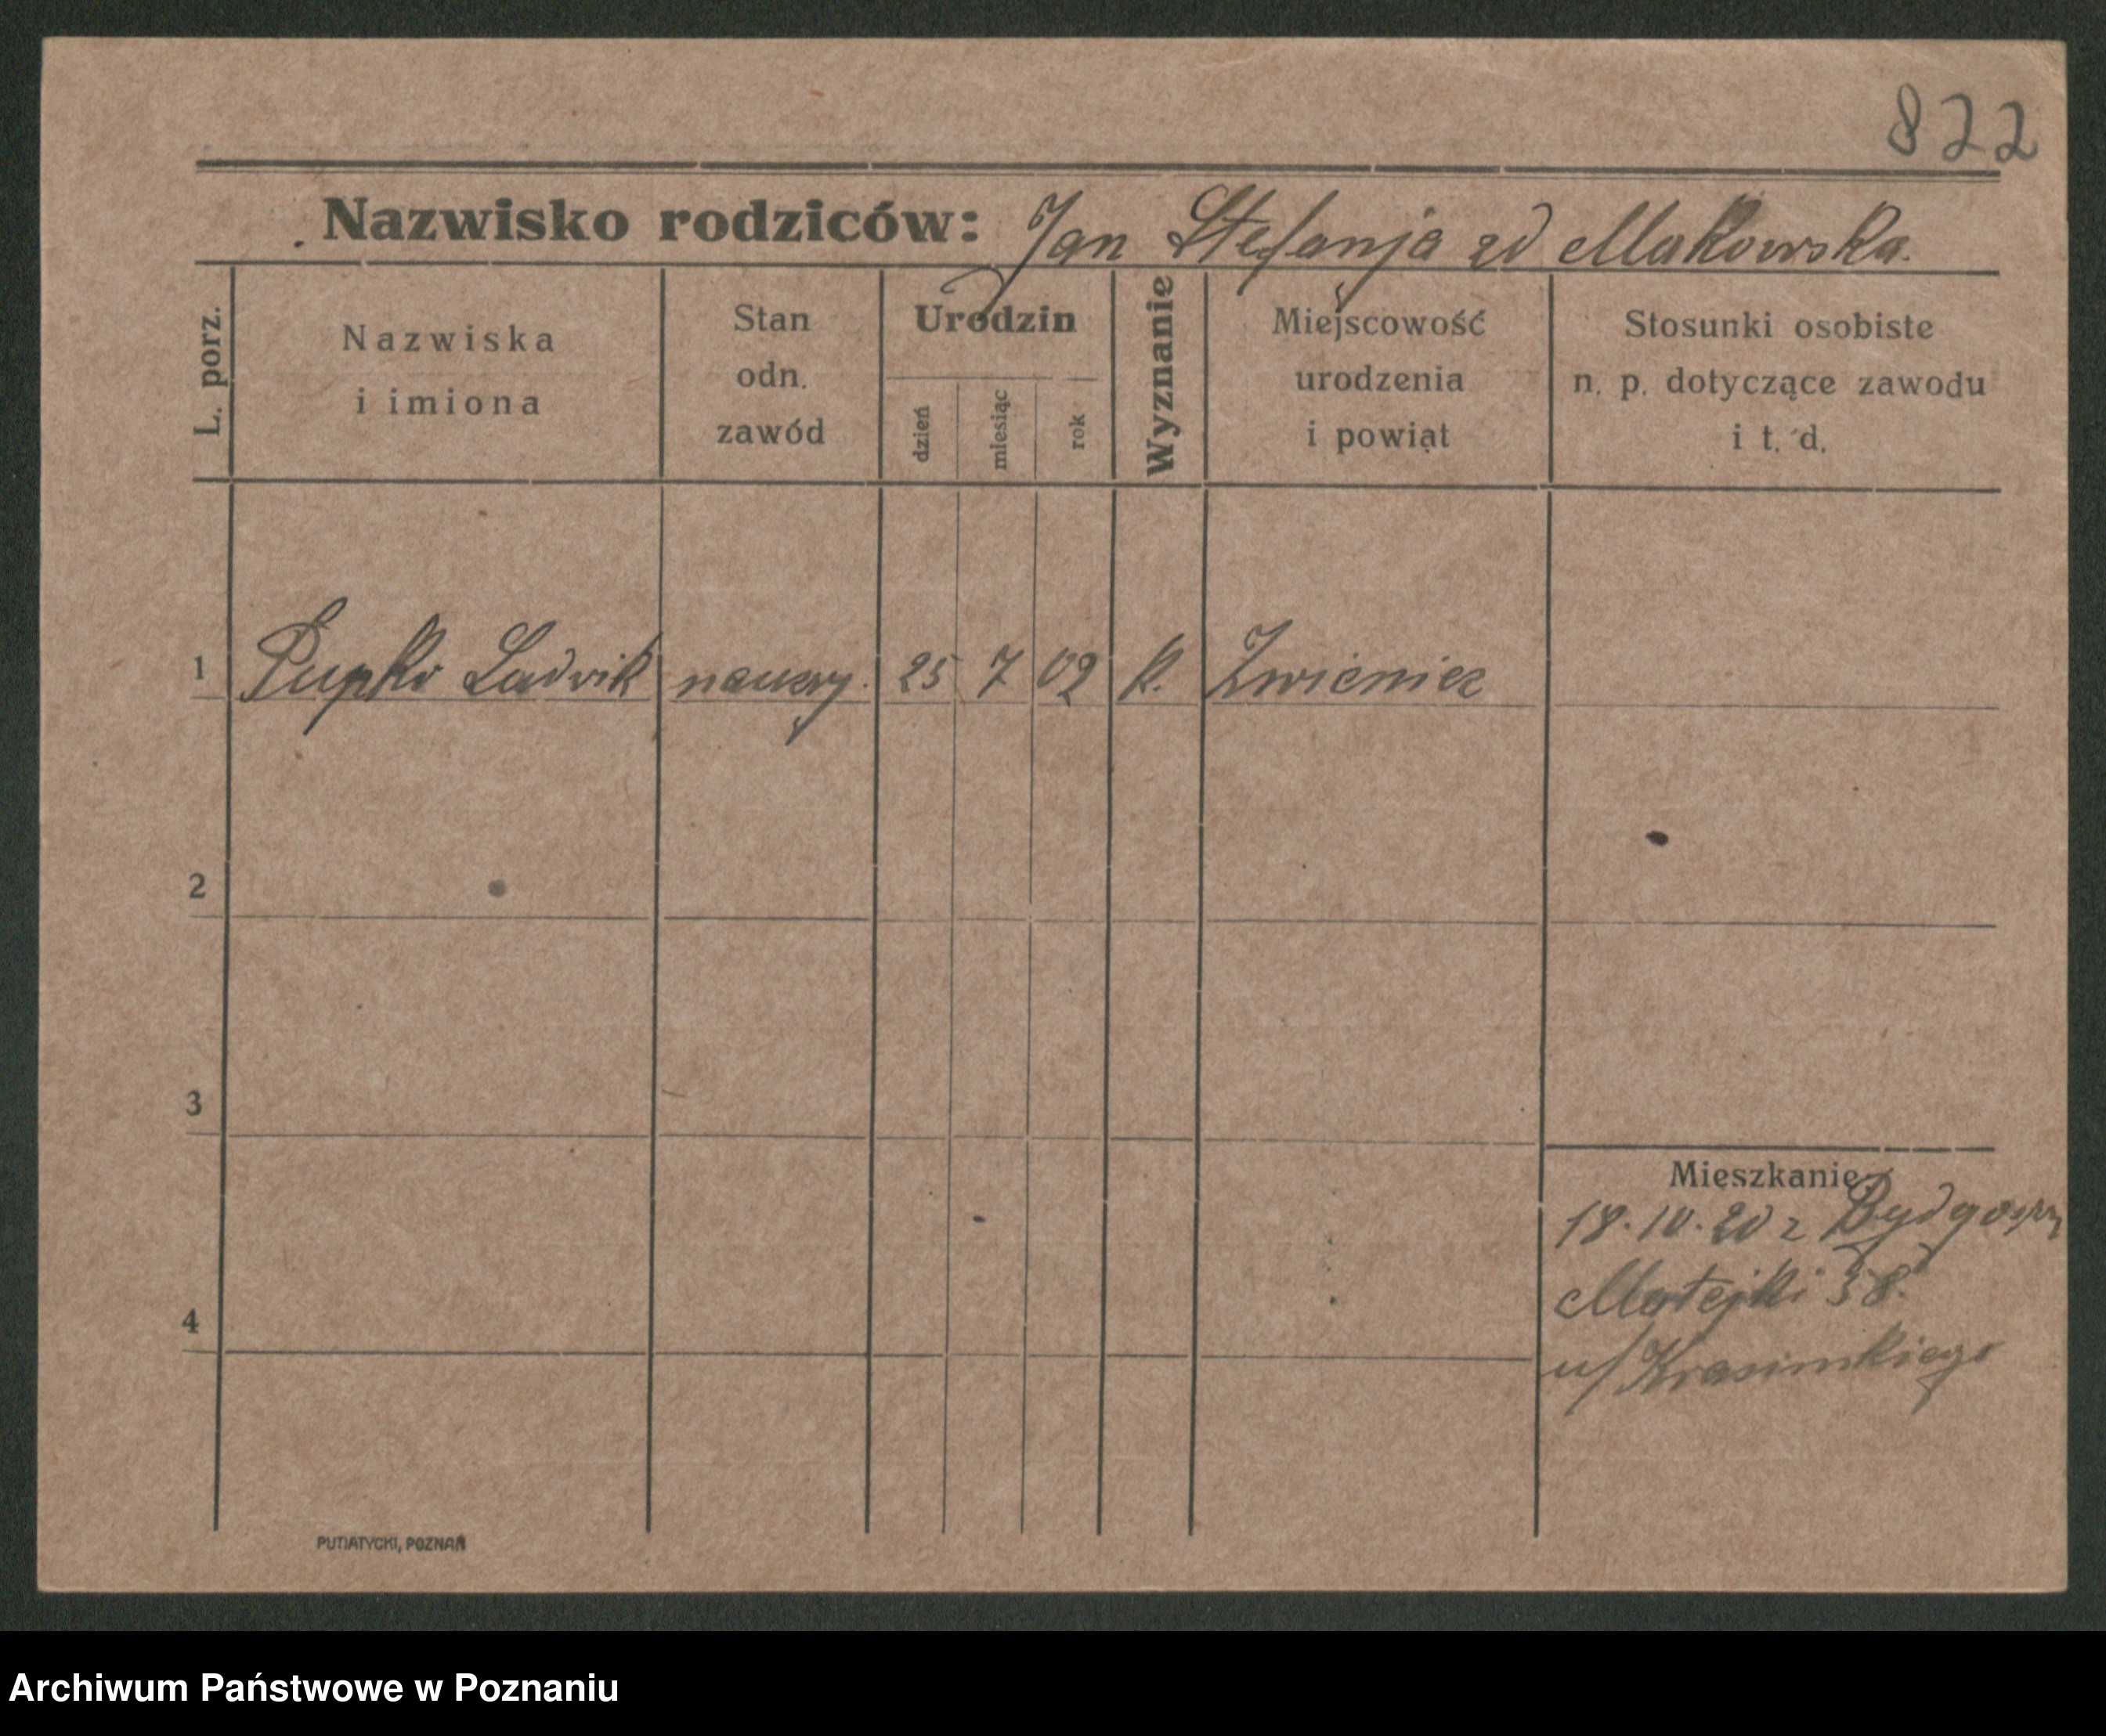 822
Nazwisko rodziców: Jan Stefanja zd Makowska.
L. porz.
Nazwiska
i imiona
Stan
odn.
zawód
Urodzin
dzień
miesiąc
rok
Wyznanie
Miejscowość
urodzenia
i powiat
Stosunki osobiste
n. p. dotyczące zawodu
i t. d.
1 Pupko Ludwik 25 7 02 k. Zwieniec
2
3
4
Mieszkanie
18.10.20 z Bydgoszcz
Matejki 58.
u/
PUTIATYCKI, POZNAŃ
Archiwum Państwowe w Poznaniu